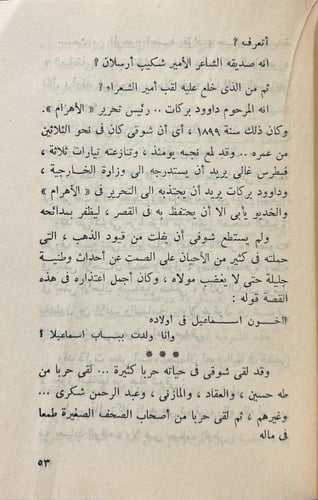 أتعرف ؟
انه صديقه الشاعر الأمير شكيب أرسلان ؟
ثم من الذى خلع عليه لقب أمير الشعراء ؟
انه المرحوم داوود بركات .. رئيس تحرير « الأهرام ».
وكان ذلك سنة ١٨٩٩ ، أى أن شوقى كان فى نحو الثلاثين
من عمره .. وقد لمع نجمه يومئذ ، وتنازعته تيارات ثلاثة ،
فبطرس غالى يريد أن يستدرجه الى وزارة الخارجية ،
وداوود بركات يريد أن يجتذبه الى التحرير فى « الأهرام »
والخديو يأبى الا أن يحتفظ به فى القصر ، ليظفر بمدائحه
ولم يستطع شوقى أن يفلت من قيود الذهب ، التى
حملته فى كثير من الأحيان على الصمت عن أحداث وطنية
جليلة حتى لا يغضب مولاه ، وكان أجمل اعتذاره فى هذه
القصة قوله :
أأخون اسماعيل فى أولاده
وأنا ولدت بباب اسماعيلا ؟
***
وقد لقى شوقى فى حياته حربا كثيرة ... لقى حربا من
طه حسين ، والعقاد ، والمازنى ، وعبد الرحمن شكرى ...
وغيرهم ، ثم لقى حربا من أصحاب الصحف الصغيرة طمعا
فى ماله
٥٣